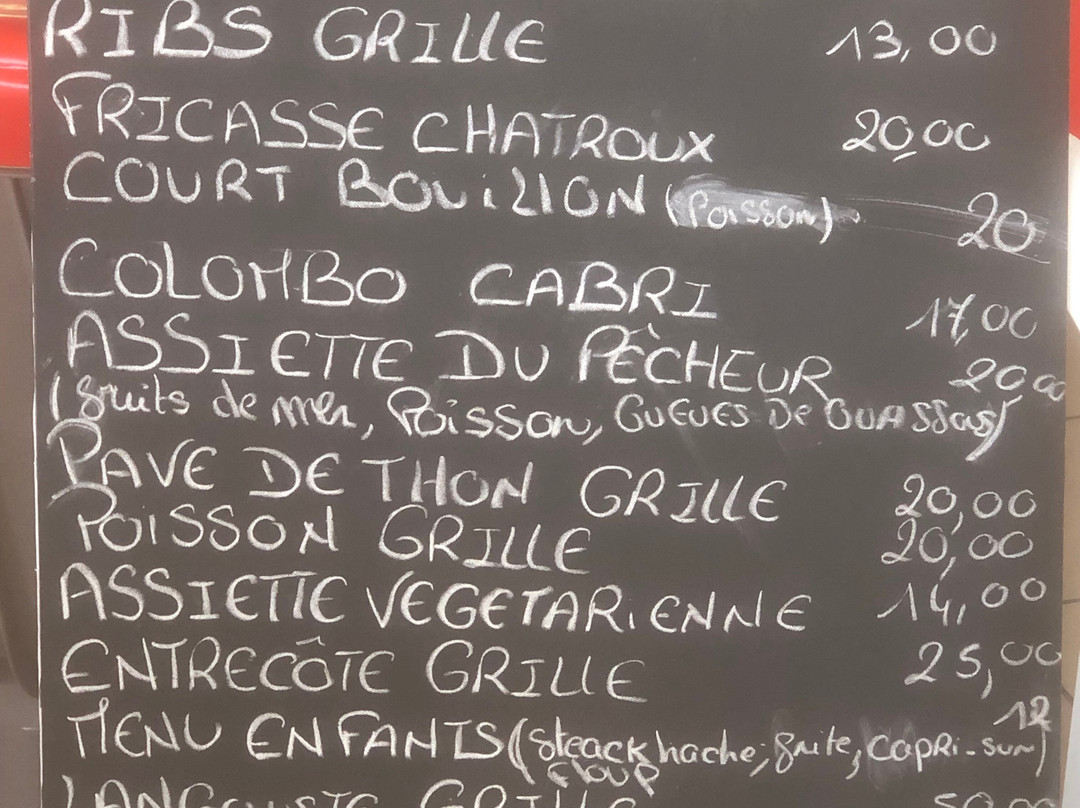 RIBS GRILLE 13,00
FRICASSE CHATROUX 20,00
COURT BOUILLON (Poisson) 20
COLOMBO CABRI 17,00
ASSIETTE DU PÊCHEUR 20,00
(fruits de mer, Poisson, GUEUES De OUASSOUS)
PAVE DE THON GRILLE 20,00
POISSON GRILLE 20,00
ASSIETTE VEGETARIENNE 14,00
ENTRECÔTE GRILLE 25,00
MENU ENFANTS (Steack hache, frite, CAPRI-SUN) 12
LANGOUSTE GRILLE